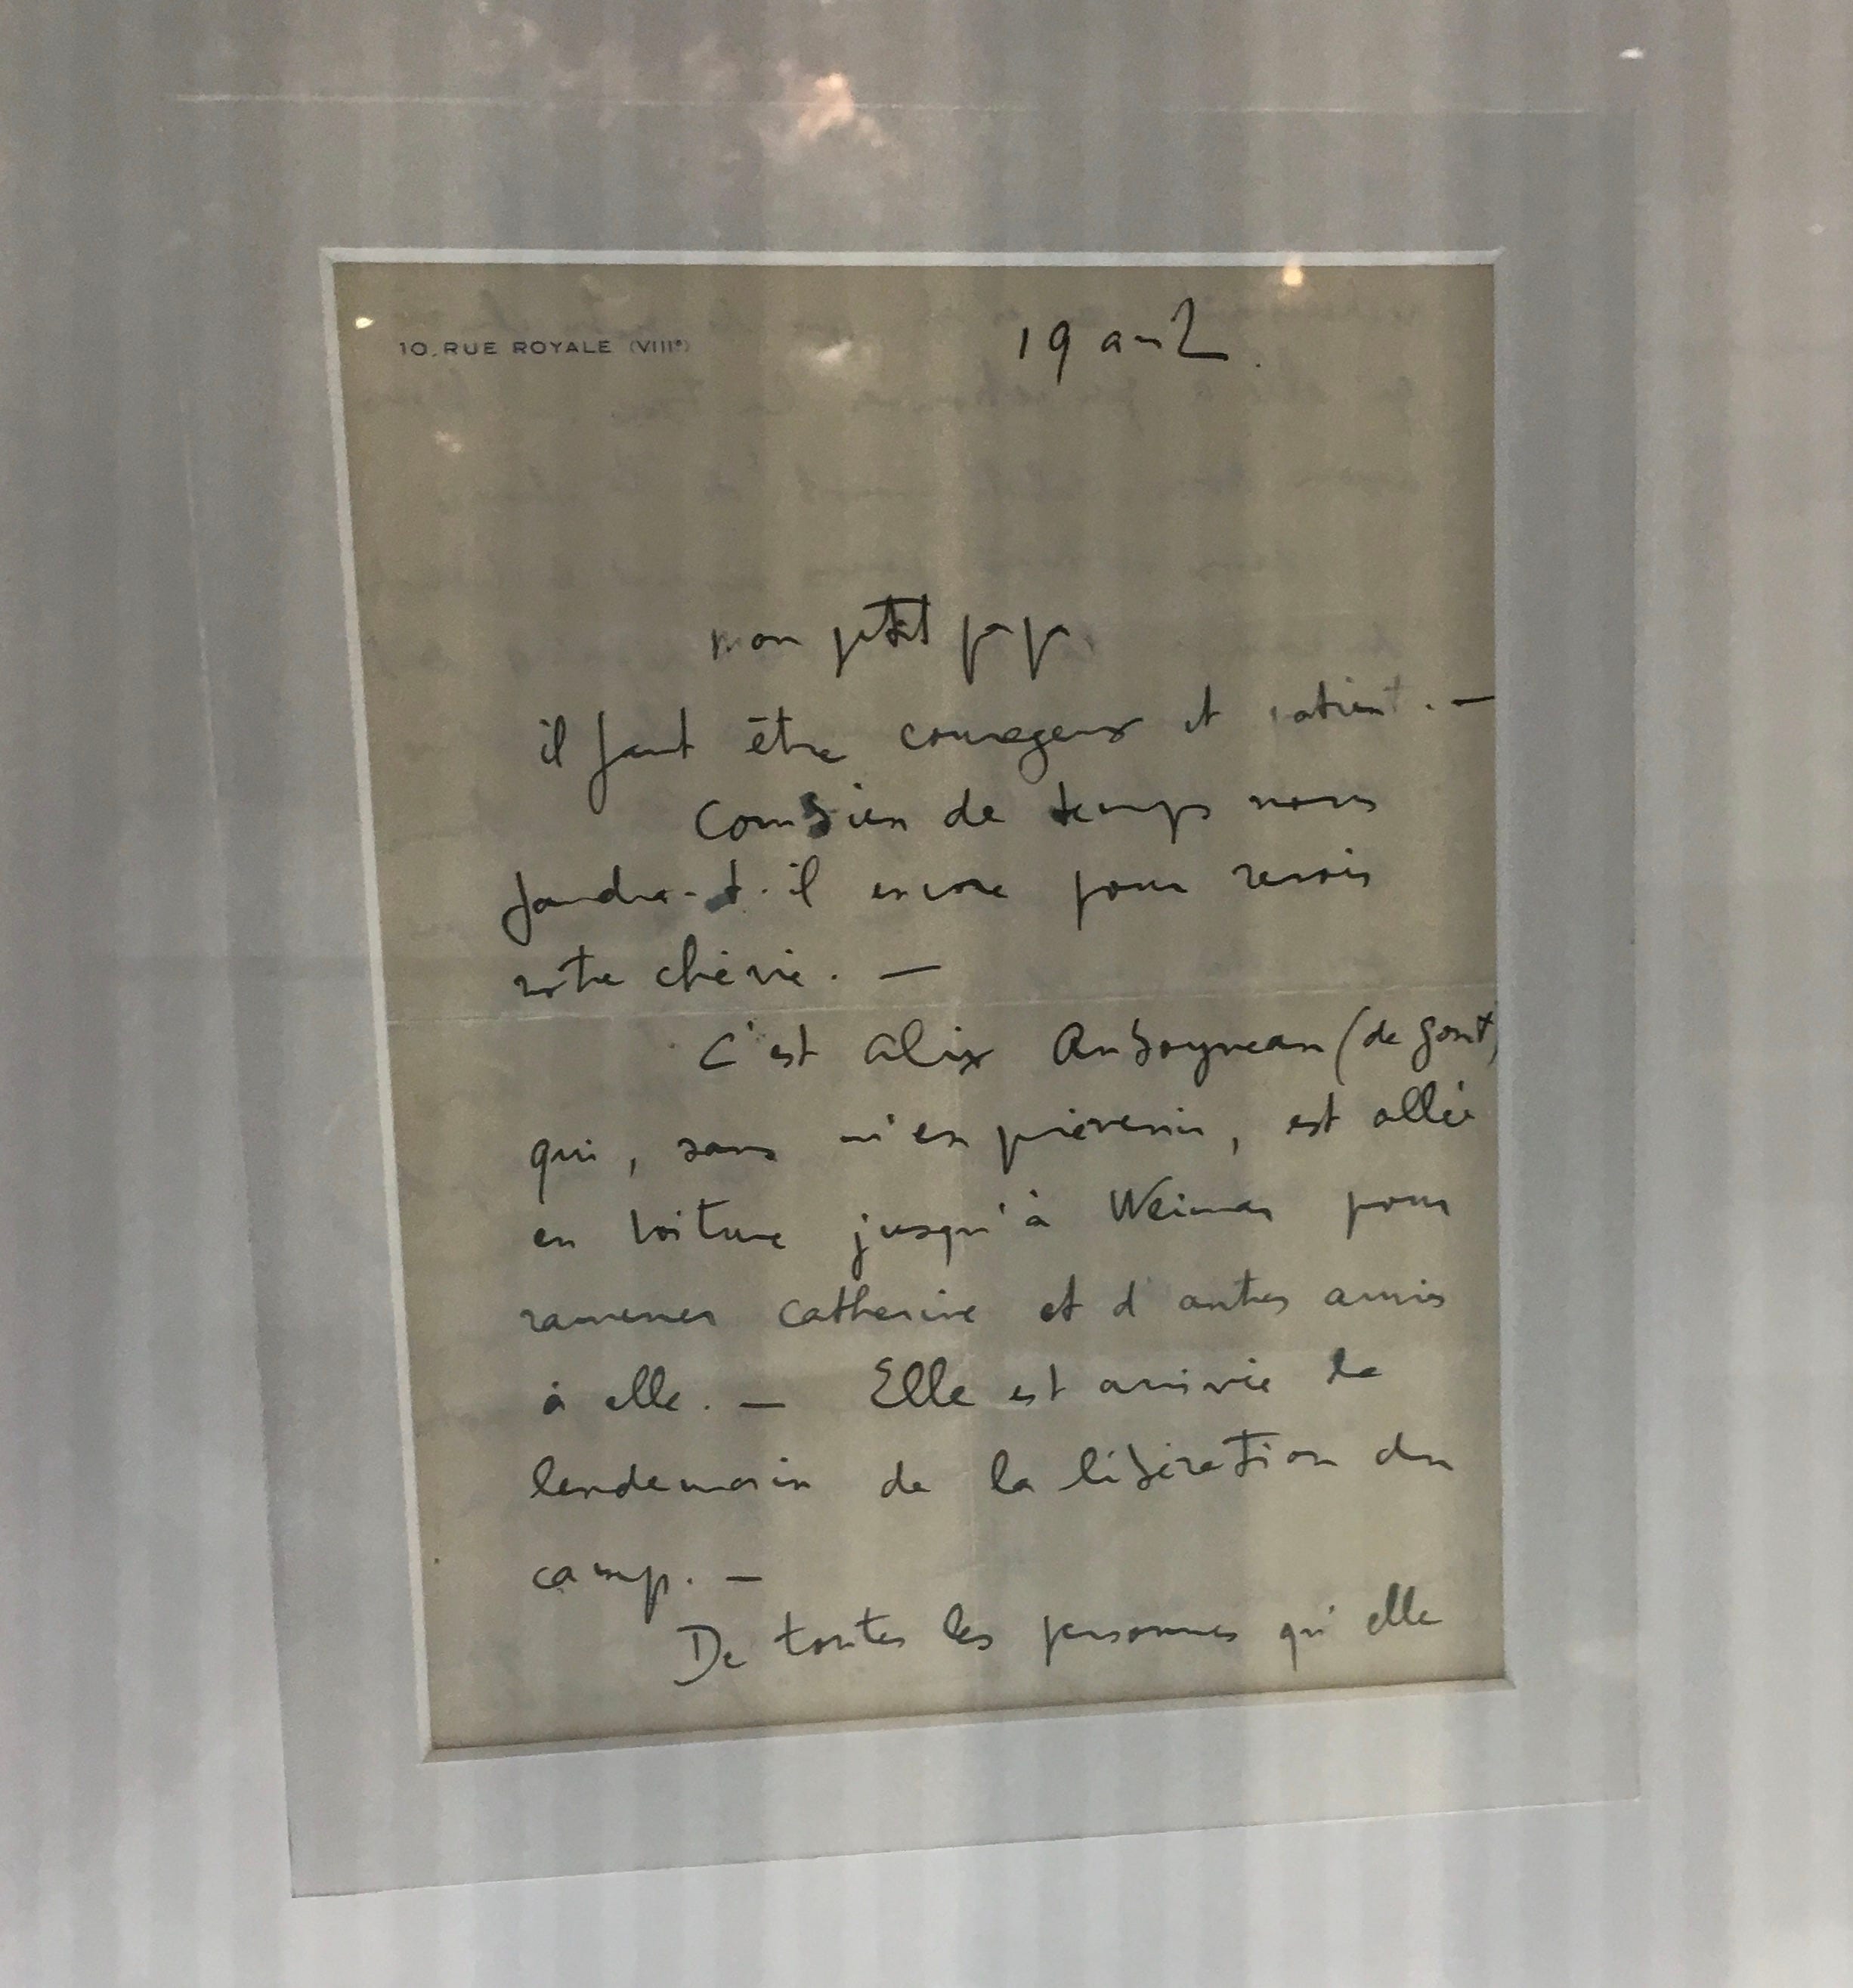 10, RUE ROYALE (VIIIᵉ)
19 avril.
mon petit papa
il faut être courageux et patient. —
Combien de temps nous
faudra-t-il encore pour revoir
notre chérie. —
C'est Alix Auboyneau (de
qui, sans m'en prévenir, est allée
en voiture jusqu'à Weimar pour
ramener Catherine et d'autres amis
à elle. — Elle est arrivée le
lendemain de la libération du
camp. —
De toutes les personnes qu'elle